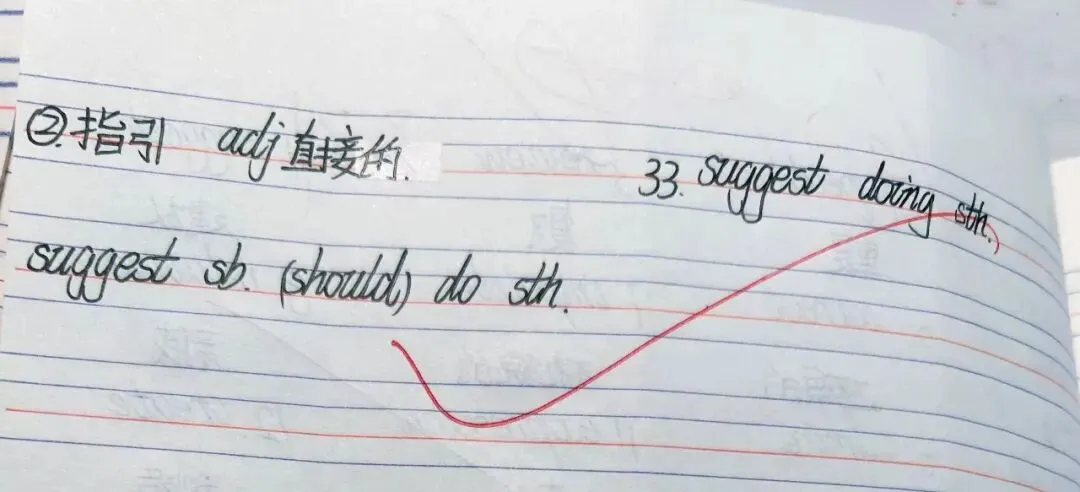 ②.指引 adj 直接的. 33. suggest doing sth.
suggest sb. (should) do sth.